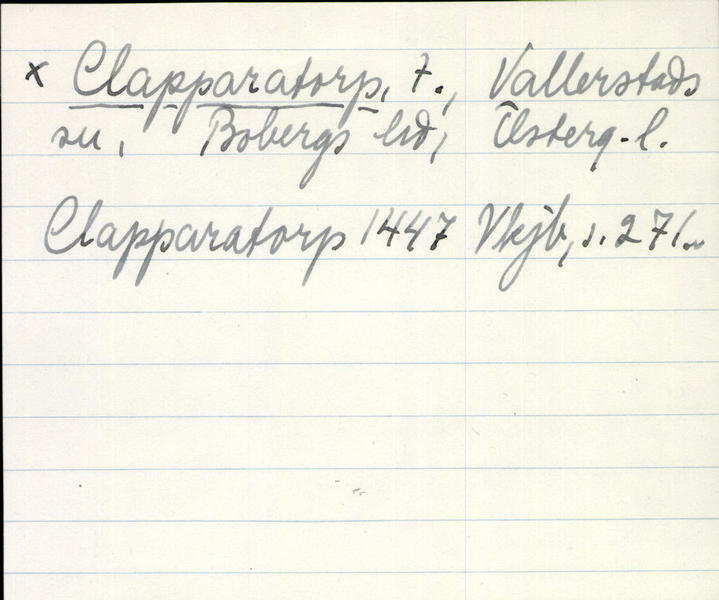 x Clapparatorp, t., Vallerstads
sn, Bobergs hd, Österg. l.
Clapparatorp 1447 Vkjb, s. 271.